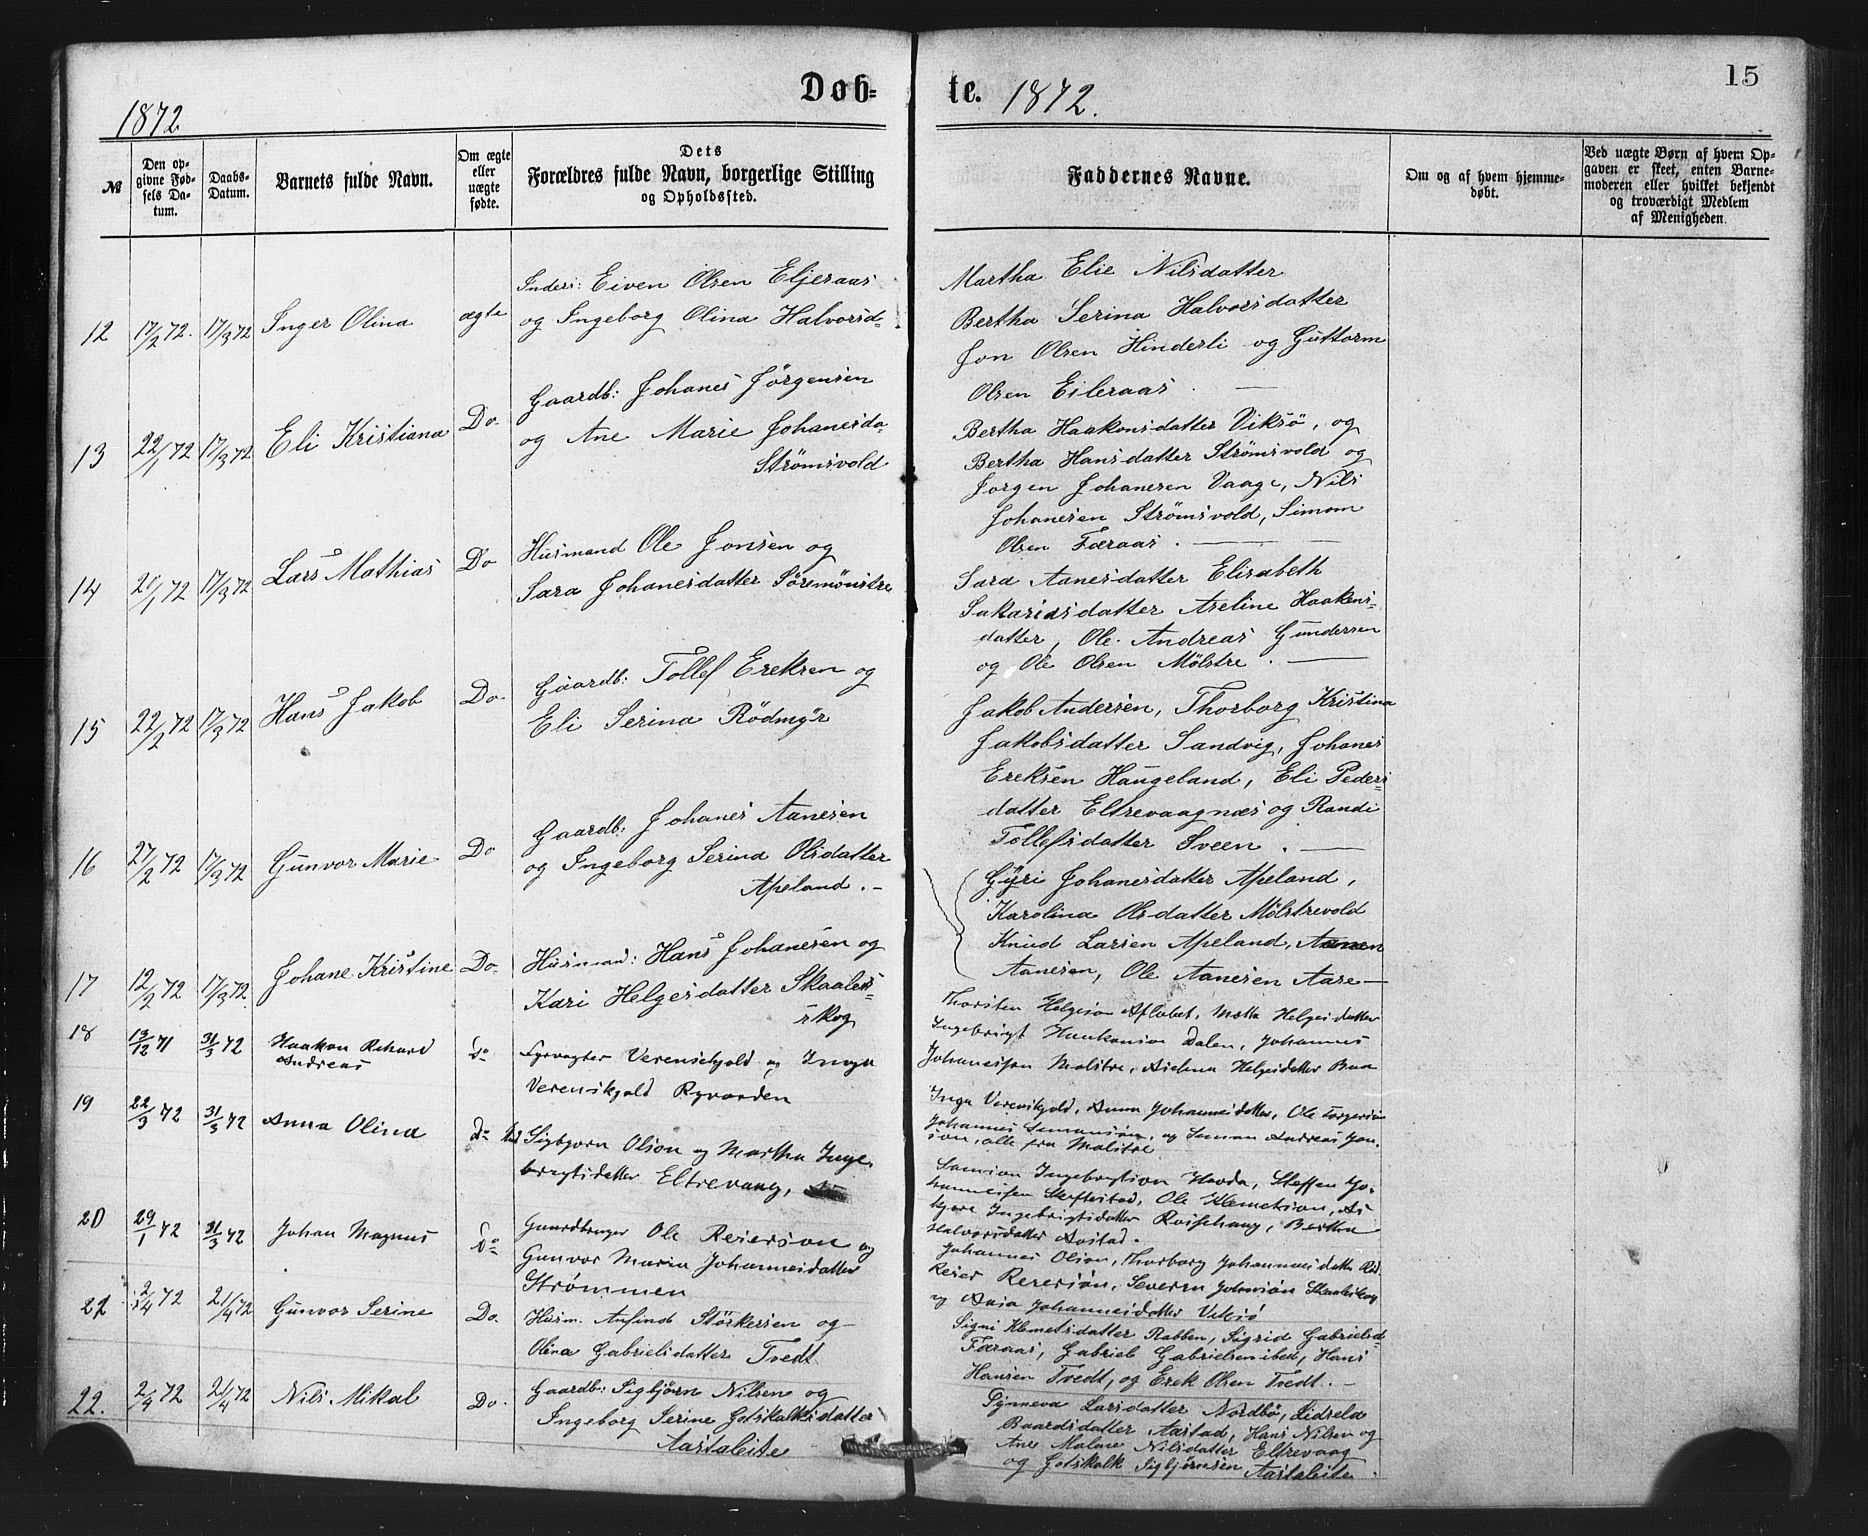 Døb- te. 1872.
15
1872
№
Den opgivne Fødsels Datum.
Daabs-Datum.
Barnets fulde Navn.
Om ægte eller uægte fødte.
Dets Forældres fulde Navn, borgerlige Stilling og Opholdssted.
Faddernes Navne.
Om og af hvem hjemmedøbt.
Ved uægte Børn af hvem Opgaven er skeet, enten Barnemoderen eller hvilket bekjendt og troværdigt Medlem af Menigheden.
12 17/2 72. 17/3 72 Inger Olina ægte
Inders: Eiven Olsen Eljeraas
og Ingeborg Olina Halvorsd-
Martha Elie Nilsdatter
Bertha Serina Halvorsdatter
Jon Olsen Hinderli og Guttorm
Olsen Eileraas.
13 22/1 72 17/3 72 Eli Kristiana Do.
Gaardb: Johanes Jørgensen
og Ane Marie Johanesda-
Strømsvold
Bertha Haakonsdatter Viksø, og
Bertha Hansdatter Strømsvold og
Jorgen Johanesen Vaage, Nils
Johanesen Strømsvold, Simom
Olsen Færaas.
14 21/1 72 17/3 72 Lars Mathias Do
Husmand Ole Jonsen og
Sara Johanesdatter Søremönstre
Sara Aanesdatter Elisabeth
Sakariasdatter Aseline Haakens-
datter, Ole Andreas Gundersen
og Ole Olsen Mølstre.
15 22/2 72 17/3 72 Hans Jakob Do.
Gaardb: Tollef Ereksen og
Eli Serina Rödmyr
Jakob Andersen, Thorborg Kristina
Jakobsdatter Sandvig, Johanes
Ereksen Haugeland, Eli Peders-
datter Eltrevaagnæs og Randi
Tollefsdatter Sveen.
16 27/2 72 17/3 72 Gunvor Marie Do
Gaardb: Johanes Aanesen
og Ingeborg Serina Olsdatter
Apeland.
Gyri Johanesdatter Apeland,
Karolina Olsdatter Mølstrevold
Knud Larsen Apeland,
Aanesen, Ole Aanesen Aare
17 12/2 72 17/3 72 Johane Kristine Do.
Husmand: Hans Johanesen og
Kari Helgesdatter Skaales-
skog
Thorsten Helgeson Afløbet, Metta Helgesdatter
Ingebrigt Haakonson Dalen, Johannes
Johannesson Molstre, Aselena Helgesdatter
18 13/12 71 31/3 72 Haakon Rikard
Andreas
Do
Fyrvogter Verenskjold og Inga
Verenskjold Ryvarden
Inga Verenskjold, Anna Johannesdatter, Ole
Johannes Semonson, og Semon Andreas Jon-
son, alle fra Molstre
19 22/3 72 31/3 72 Anna Olina Do
Sigbjørn Olson og Martha Inge-
brigtsdatter Eltrevaag,
Samson Ingebrigtson Hovda, Steffen Jo-
hannesen Skeftestad, Ole Klemetson,
Ingebrigtsdatter Roiphaug, Bertha
Halvorsdatter Aastad.
20 29/1 72 31/3 72 Johan Magnus Do
Gaardbruger Ole Reierson og
Gunvor Maria Johannesdatter
Strømmen
Johannes Olson, Thorborg Johannesdatter
Reier Reierson, Severin Johnson Skaaleskog
og Ania Johannesdatter Viksø
21 2/4 72 21/4 72 Gunvor Serine Do.
Husm. Anfind Störkersen og
Olina Gabrielsdatter Tvedt
Signi Klemetsdatter Rabben, Sigrid Gabrielsd-
Færaas, Gabriel Gabrielsen ibed, Hans
Hansen Tvedt, og Erek Olsen Tvedt.
22. 2/4 72 21/4 72 Nils Mikal Do.
Gaardb: Sigbjørn Nilsen og
Ingeborg Serine Gotskalksdatter
Aastaleite
Synneva Larsdatter Nordbø, Sidsela
Baardsdatter Aastad, Hans Nilsen og
Ane Malene Nilsdatter Eltrevaag
og Gotskalk Sigbjørnsen Aastaleite.